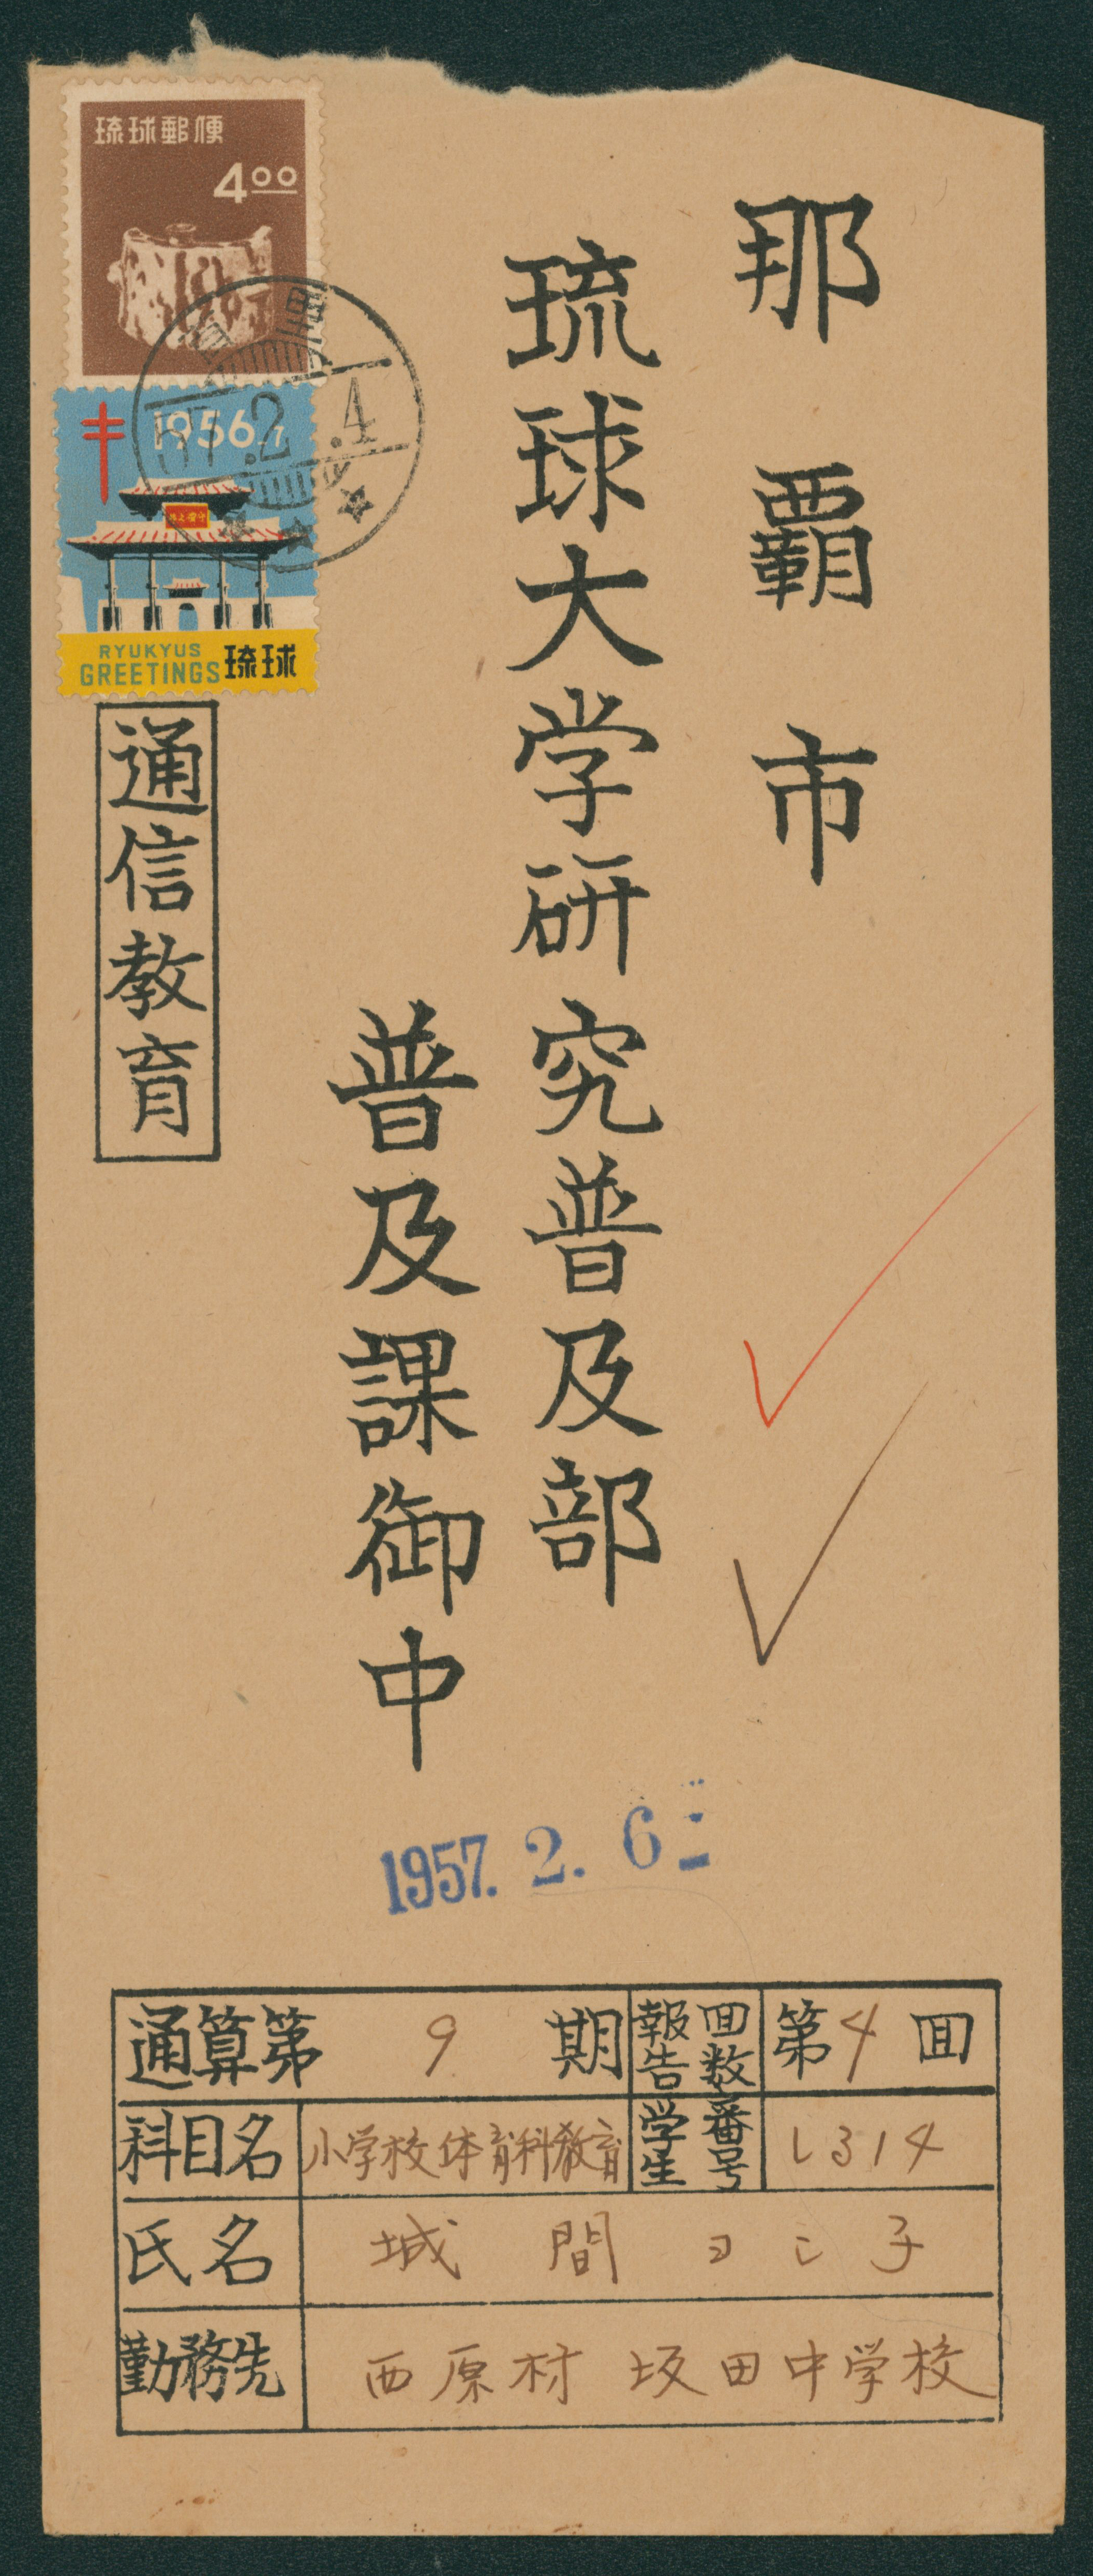 那覇市
琉球大学研究普及部
普及課御中
琉球郵便
4.00
首里
57.2.4
1956-7
守禮之邦
RYUKYUS
GREETINGS
琉球
通信教育
1957. 2. 6
通算第 9 期 報告回数 第4回
科目名 小学校体育科教育 学生番号 L314
氏名 城間ヨシ子
勤務先 西原村 坂田中学校